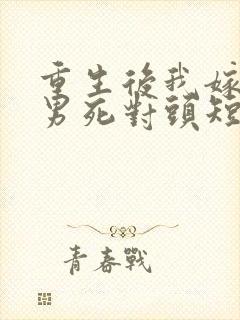 重生後我嫁
男死對頭短
青春戰